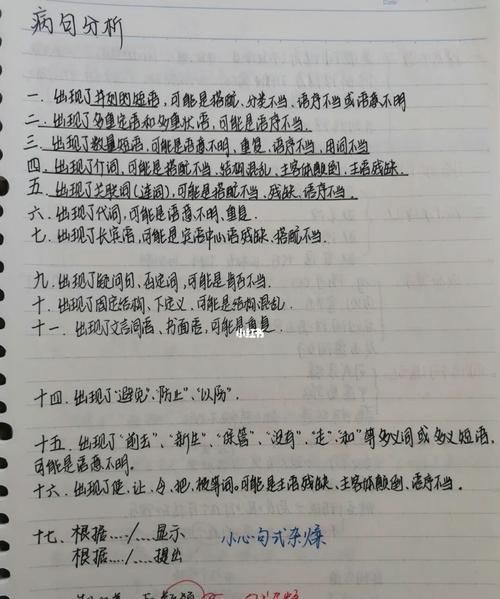 病句分析
一、出现了并列的短语,可能是搭配、分类不当、语序不当或语意不明
二、出现了多重定语和多重状语,可能是语序不当.
三、出现了数量短语,可能是语意不明、重复、语序不当、用词不当
四、出现了介词,可能是搭配不当、结构混乱、主客体颠倒、主语残缺.
五、出现了关联词(连词),可能是搭配不当、残缺、语序不当.
六、出现了代词,可能是语意不明、重复.
七、出现了长定语,可能是宾语中心语残缺、搭配不当.
九、出现了疑问句、否定词,可能是肯否不当.
十、出现了固定结构、下定义,可能是结构混乱.
十一、出现了文言词语、书面语,可能是重复.
小红书
十四、出现了"避免"、"防止"、"以防".
十五、出现了"前去"、"新生"、"保管"、"没有"、"走"、"和"等多义词或多义短语,
可能是语意不明。
十六、出现了使、让、令、把、被等词。可能是主语残缺、主客体颠倒、语序不当。
十七、根据..../....显示 小心句式杂糅
根据..../....提出